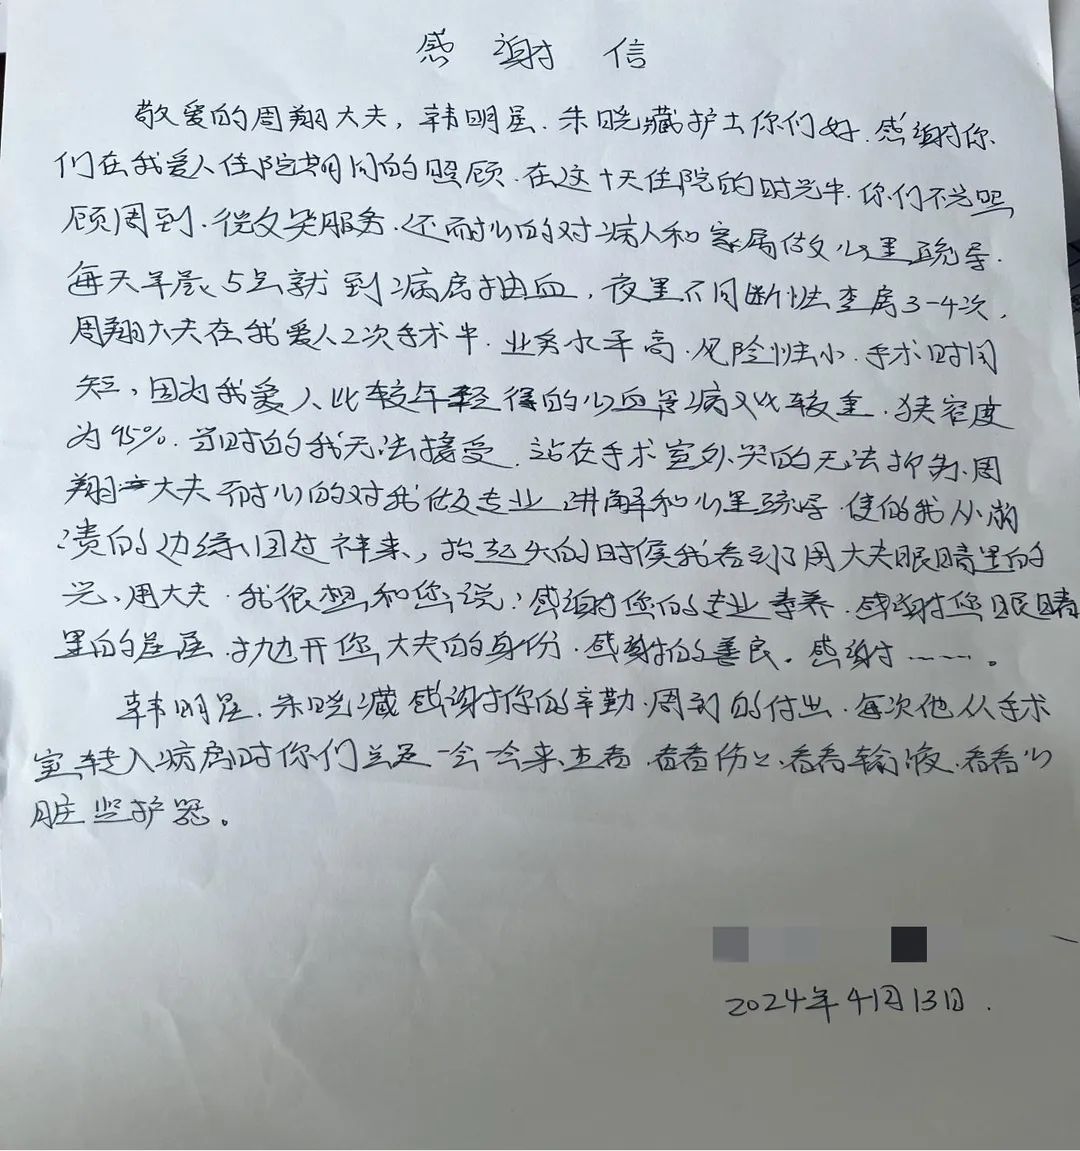 感谢信
敬爱的周翔大夫,韩明星.朱晓藏护士你们好.感谢你
们在我爱人住院期间的照顾.在这十天住院的时光中.你们不光照
顾周到.微笑服务.还耐心的对病人和家属做心里疏导.
每天早晨5点就到病房抽血,夜里不间断性查房3-4次,
周翔大夫在我爱人2次手术中.业务水平高.风险性小.手术时间
短,因为我爱人比较年轻得的心血管病又比较重.狭窄度
为95%.当时的我无法接受.站在手术室外哭的无法抑制.周
翔大夫耐心的对我做专业讲解和心里疏导.使的我从崩
溃的边缘回过神来,抬起头的时候我看到了周大夫眼睛里的
光、周大夫.我很想和您说:感谢您的专业素养.感谢您眼睛
里的星辰.抛开您大夫的身份.感谢的善良.感谢……。
韩明星.朱晓藏感谢你的辛勤.周到的付出.每次他从手术
室转入病房时你们总是一会一会来查看.看看伤口.看看输液.看看心
脏监护器。
2024年4月13日.